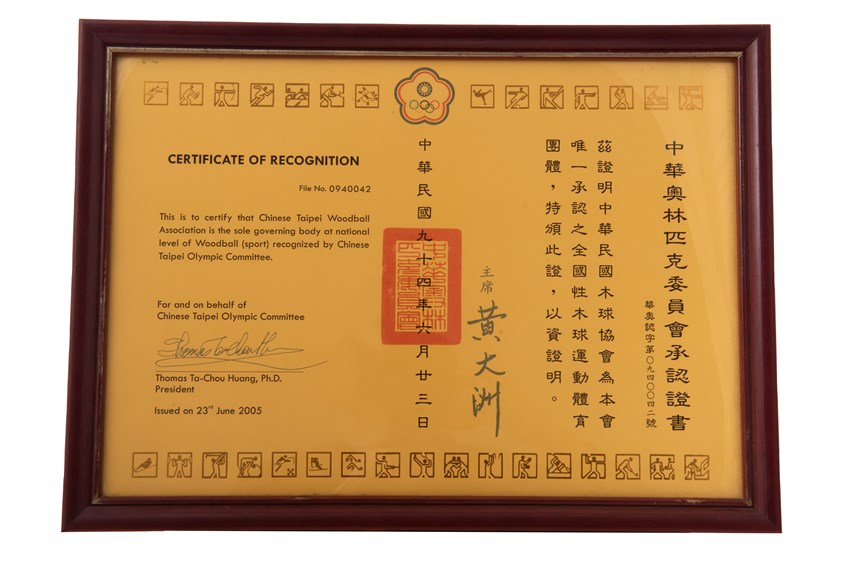 CERTIFICATE OF RECOGNITION
File No. 0940042
This is to certify that Chinese Taipei Woodball
Association is the sole governing body at national
level of Woodball (sport) recognized by Chinese
Taipei Olympic Committee.
For and on behalf of
Chinese Taipei Olympic Committee
Thomas Ta-Chou Huang, Ph.D.
President
Issued on 23rd June 2005
中華奧林匹克委員會承認證書
華奧認字第〇九四〇〇四二號
茲證明中華民國木球協會為本會
唯一承認之全國性木球運動體育
團體，特頒此證，以資證明。
主席
黃大洲
中華民國九十四年六月廿三日